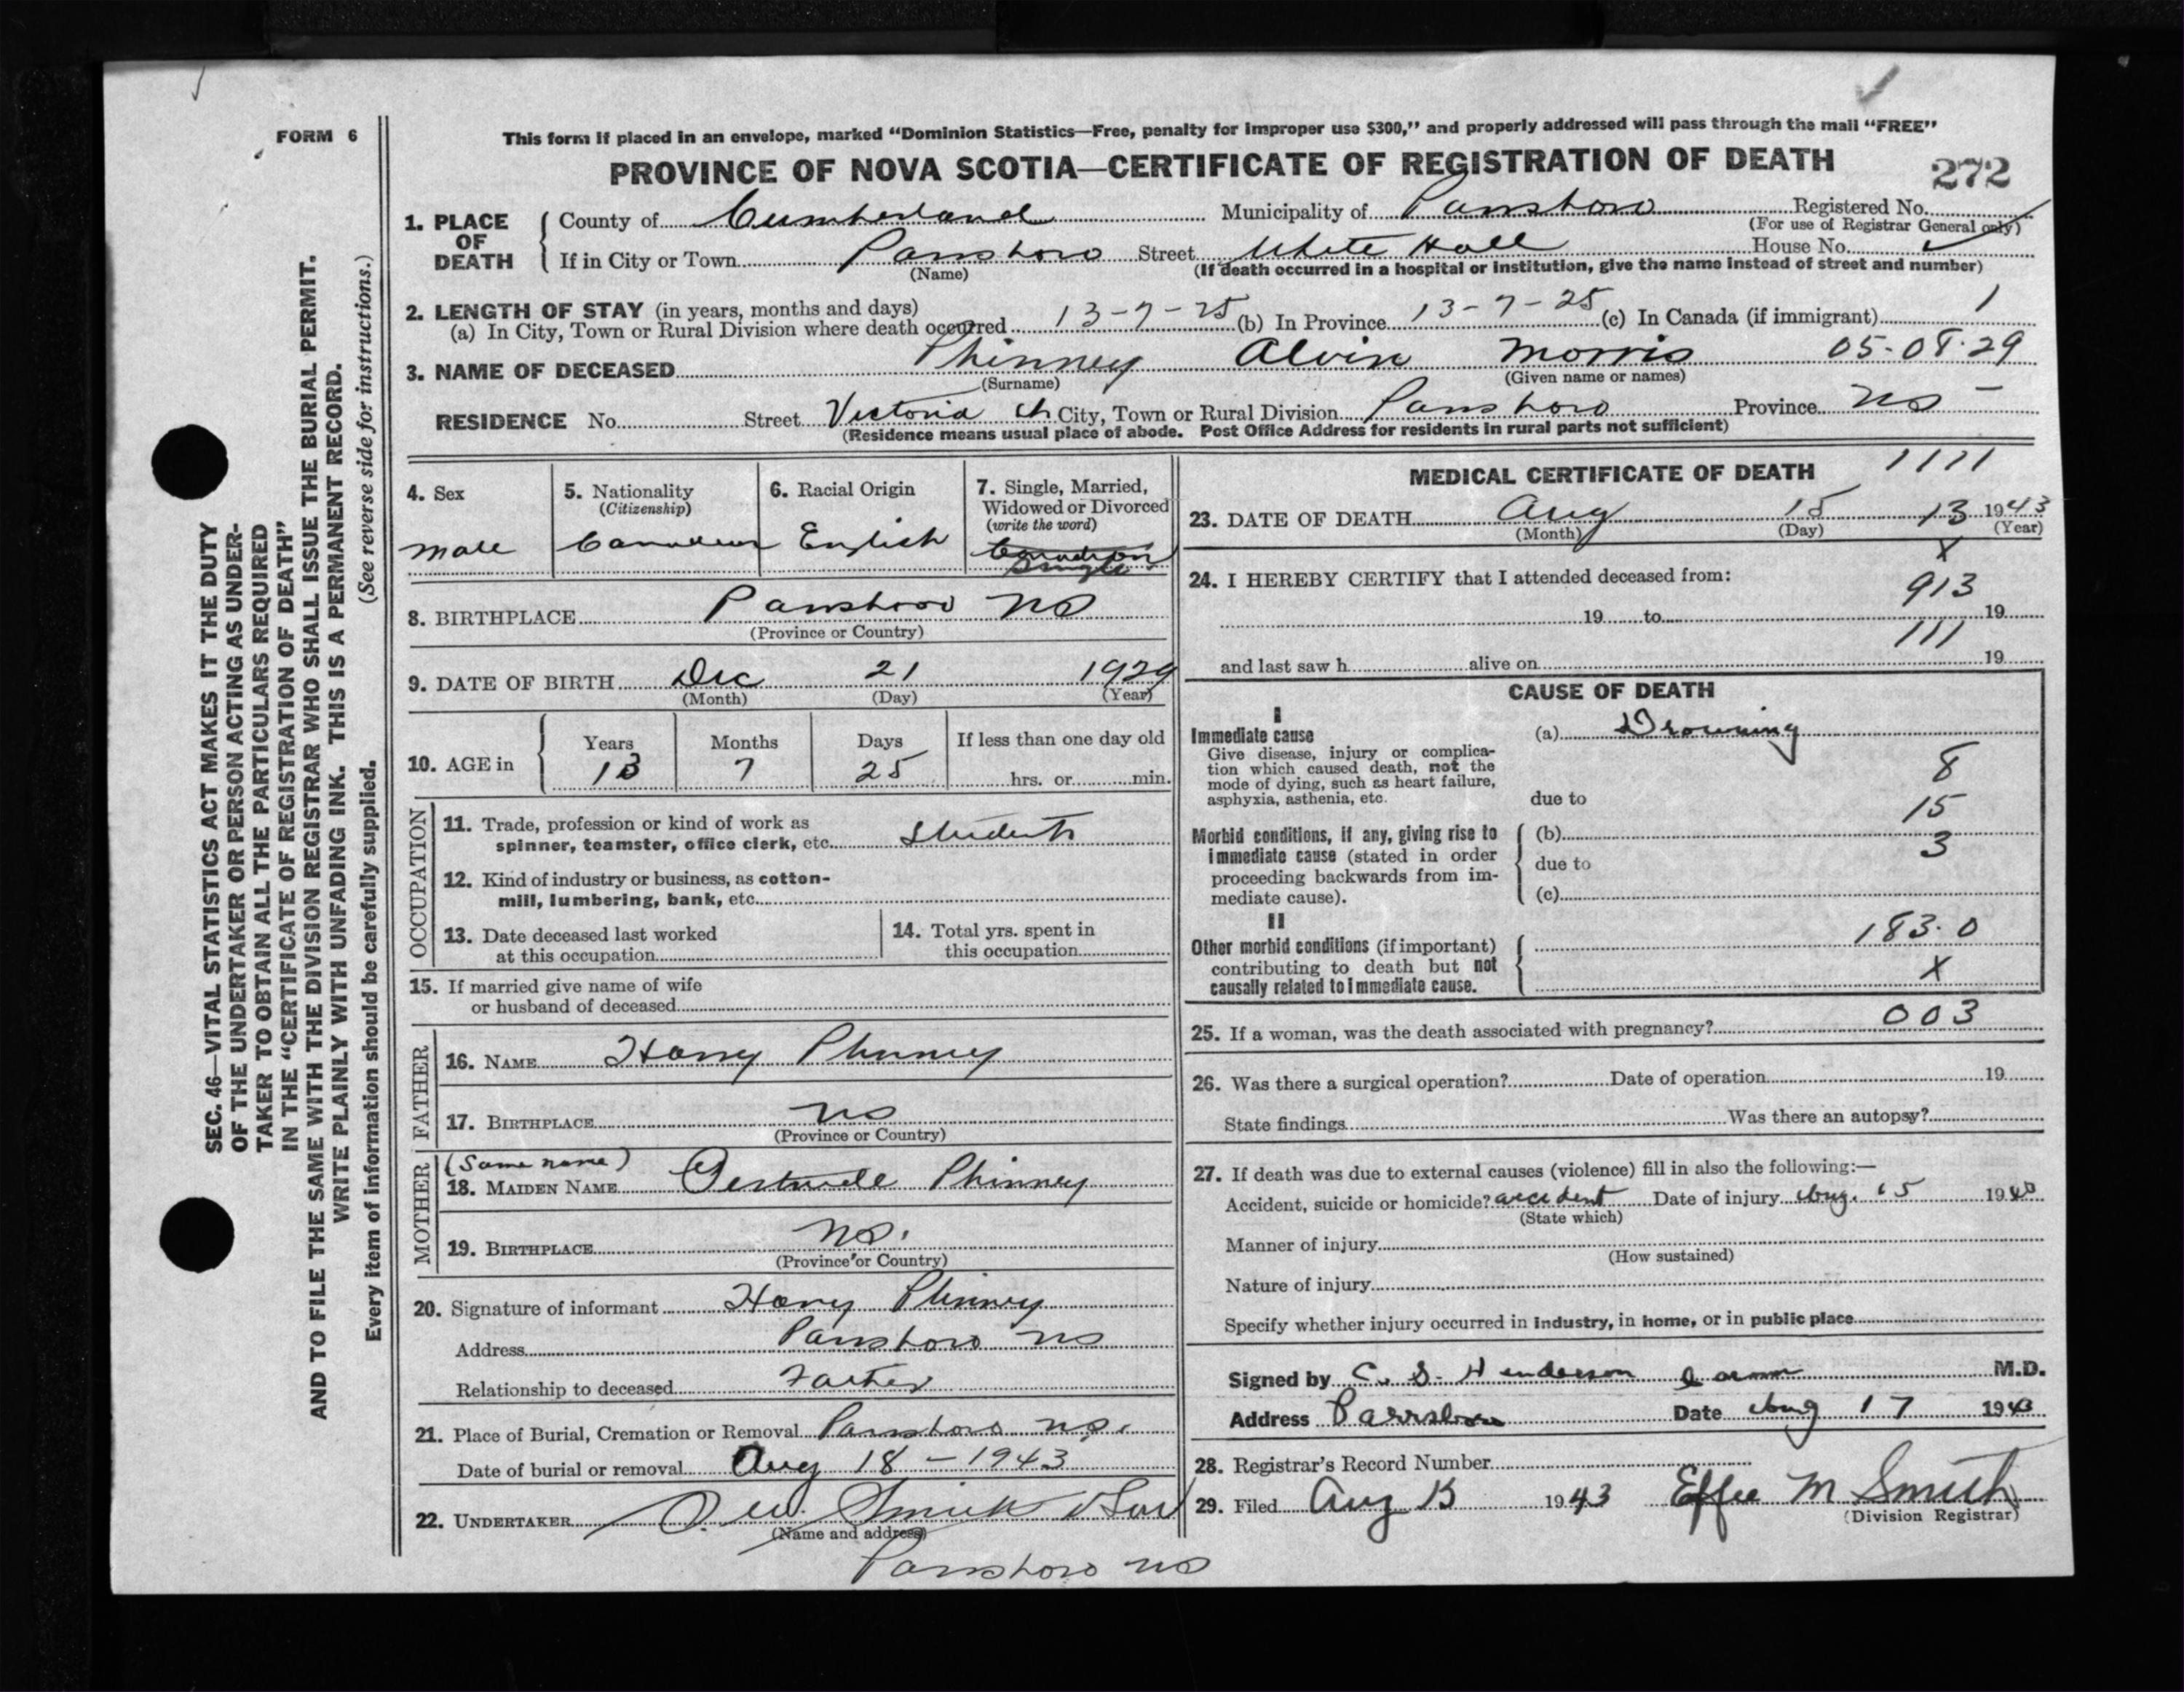 FORM 6
This form if placed in an envelope, marked “Dominion Statistics—Free, penalty for improper use $300,” and properly addressed will pass through the mail “FREE”
PROVINCE OF NOVA SCOTIA—CERTIFICATE OF REGISTRATION OF DEATH
272
SEC. 46—VITAL STATISTICS ACT MAKES IT THE DUTY
OF THE UNDERTAKER OR PERSON ACTING AS UNDER-
TAKER TO OBTAIN ALL THE PARTICULARS REQUIRED
IN THE “CERTIFICATE OF REGISTRATION OF DEATH”
AND TO FILE THE SAME WITH THE DIVISION REGISTRAR WHO SHALL ISSUE THE BURIAL PERMIT.
WRITE PLAINLY WITH UNFADING INK. THIS IS A PERMANENT RECORD.
Every item of information should be carefully supplied. (See reverse side for instructions.)
1. PLACE OF DEATH
County of Cumberland Municipality of Parrsboro Registered No.
(For use of Registrar General only)
If in City or Town Parrsboro Street White Hall House No.
(Name) (If death occurred in a hospital or institution, give the name instead of street and number)
2. LENGTH OF STAY (in years, months and days)
(a) In City, Town or Rural Division where death occurred 13-7-25 (b) In Province 13-7-25 (c) In Canada (if immigrant)
3. NAME OF DECEASED Phinney Alvin Morris 05-08-29
(Surname) (Given name or names)
RESIDENCE No. Street Victoria City, Town or Rural Division Parrsboro Province NS
(Residence means usual place of abode. Post Office Address for residents in rural parts not sufficient)
4. Sex
Male
5. Nationality
(Citizenship)
Canadian
6. Racial Origin
English
7. Single, Married,
Widowed or Divorced
(write the word)
Canadian
Single
8. BIRTHPLACE Parrsboro NS
(Province or Country)
9. DATE OF BIRTH Dec 21 1929
(Month) (Day) (Year)
10. AGE in
Years Months Days If less than one day old
13 7 25 hrs. or min.
OCCUPATION
11. Trade, profession or kind of work as
spinner, teamster, office clerk, etc. Student
12. Kind of industry or business, as cotton-
mill, lumbering, bank, etc.
13. Date deceased last worked
at this occupation
14. Total yrs. spent in
this occupation
15. If married give name of wife
or husband of deceased
FATHER
16. NAME Harry Phinney
17. BIRTHPLACE NS
(Province or Country)
MOTHER
(Same name)
18. MAIDEN NAME Gertrude Phinney
19. BIRTHPLACE NS.
(Province or Country)
20. Signature of informant Harry Phinney
Address Parrsboro NS
Relationship to deceased Father
21. Place of Burial, Cremation or Removal Parrsboro NS.
Date of burial or removal Aug 18 - 1943
22. UNDERTAKER Smith & Son
(Name and address)
Parrsboro NS
MEDICAL CERTIFICATE OF DEATH
1111
23. DATE OF DEATH Aug 15 13 1943
(Month) (Day) (Year)
X
24. I HEREBY CERTIFY that I attended deceased from:
913
19 to 19
111
and last saw h alive on 19
CAUSE OF DEATH
I
Immediate cause
Give disease, injury or complica-
tion which caused death, not the
mode of dying, such as heart failure,
asphyxia, asthenia, etc.
(a) Drowning
8
due to
15
Morbid conditions, if any, giving rise to
immediate cause (stated in order
proceeding backwards from im-
mediate cause).
(b)
3
due to
(c)
II
Other morbid conditions (if important)
contributing to death but not
causally related to immediate cause.
183.0
X
25. If a woman, was the death associated with pregnancy? 003
26. Was there a surgical operation? Date of operation 19
State findings Was there an autopsy?
27. If death was due to external causes (violence) fill in also the following:—
Accident, suicide or homicide? accident Date of injury Aug. 15 19
(State which)
Manner of injury
(How sustained)
Nature of injury
Specify whether injury occurred in industry, in home, or in public place
Signed by C. S. Henderson M.D.
Address Parrsboro Date Aug 17 1943
28. Registrar’s Record Number
29. Filed Aug 1943 Effie M Smith
(Division Registrar)